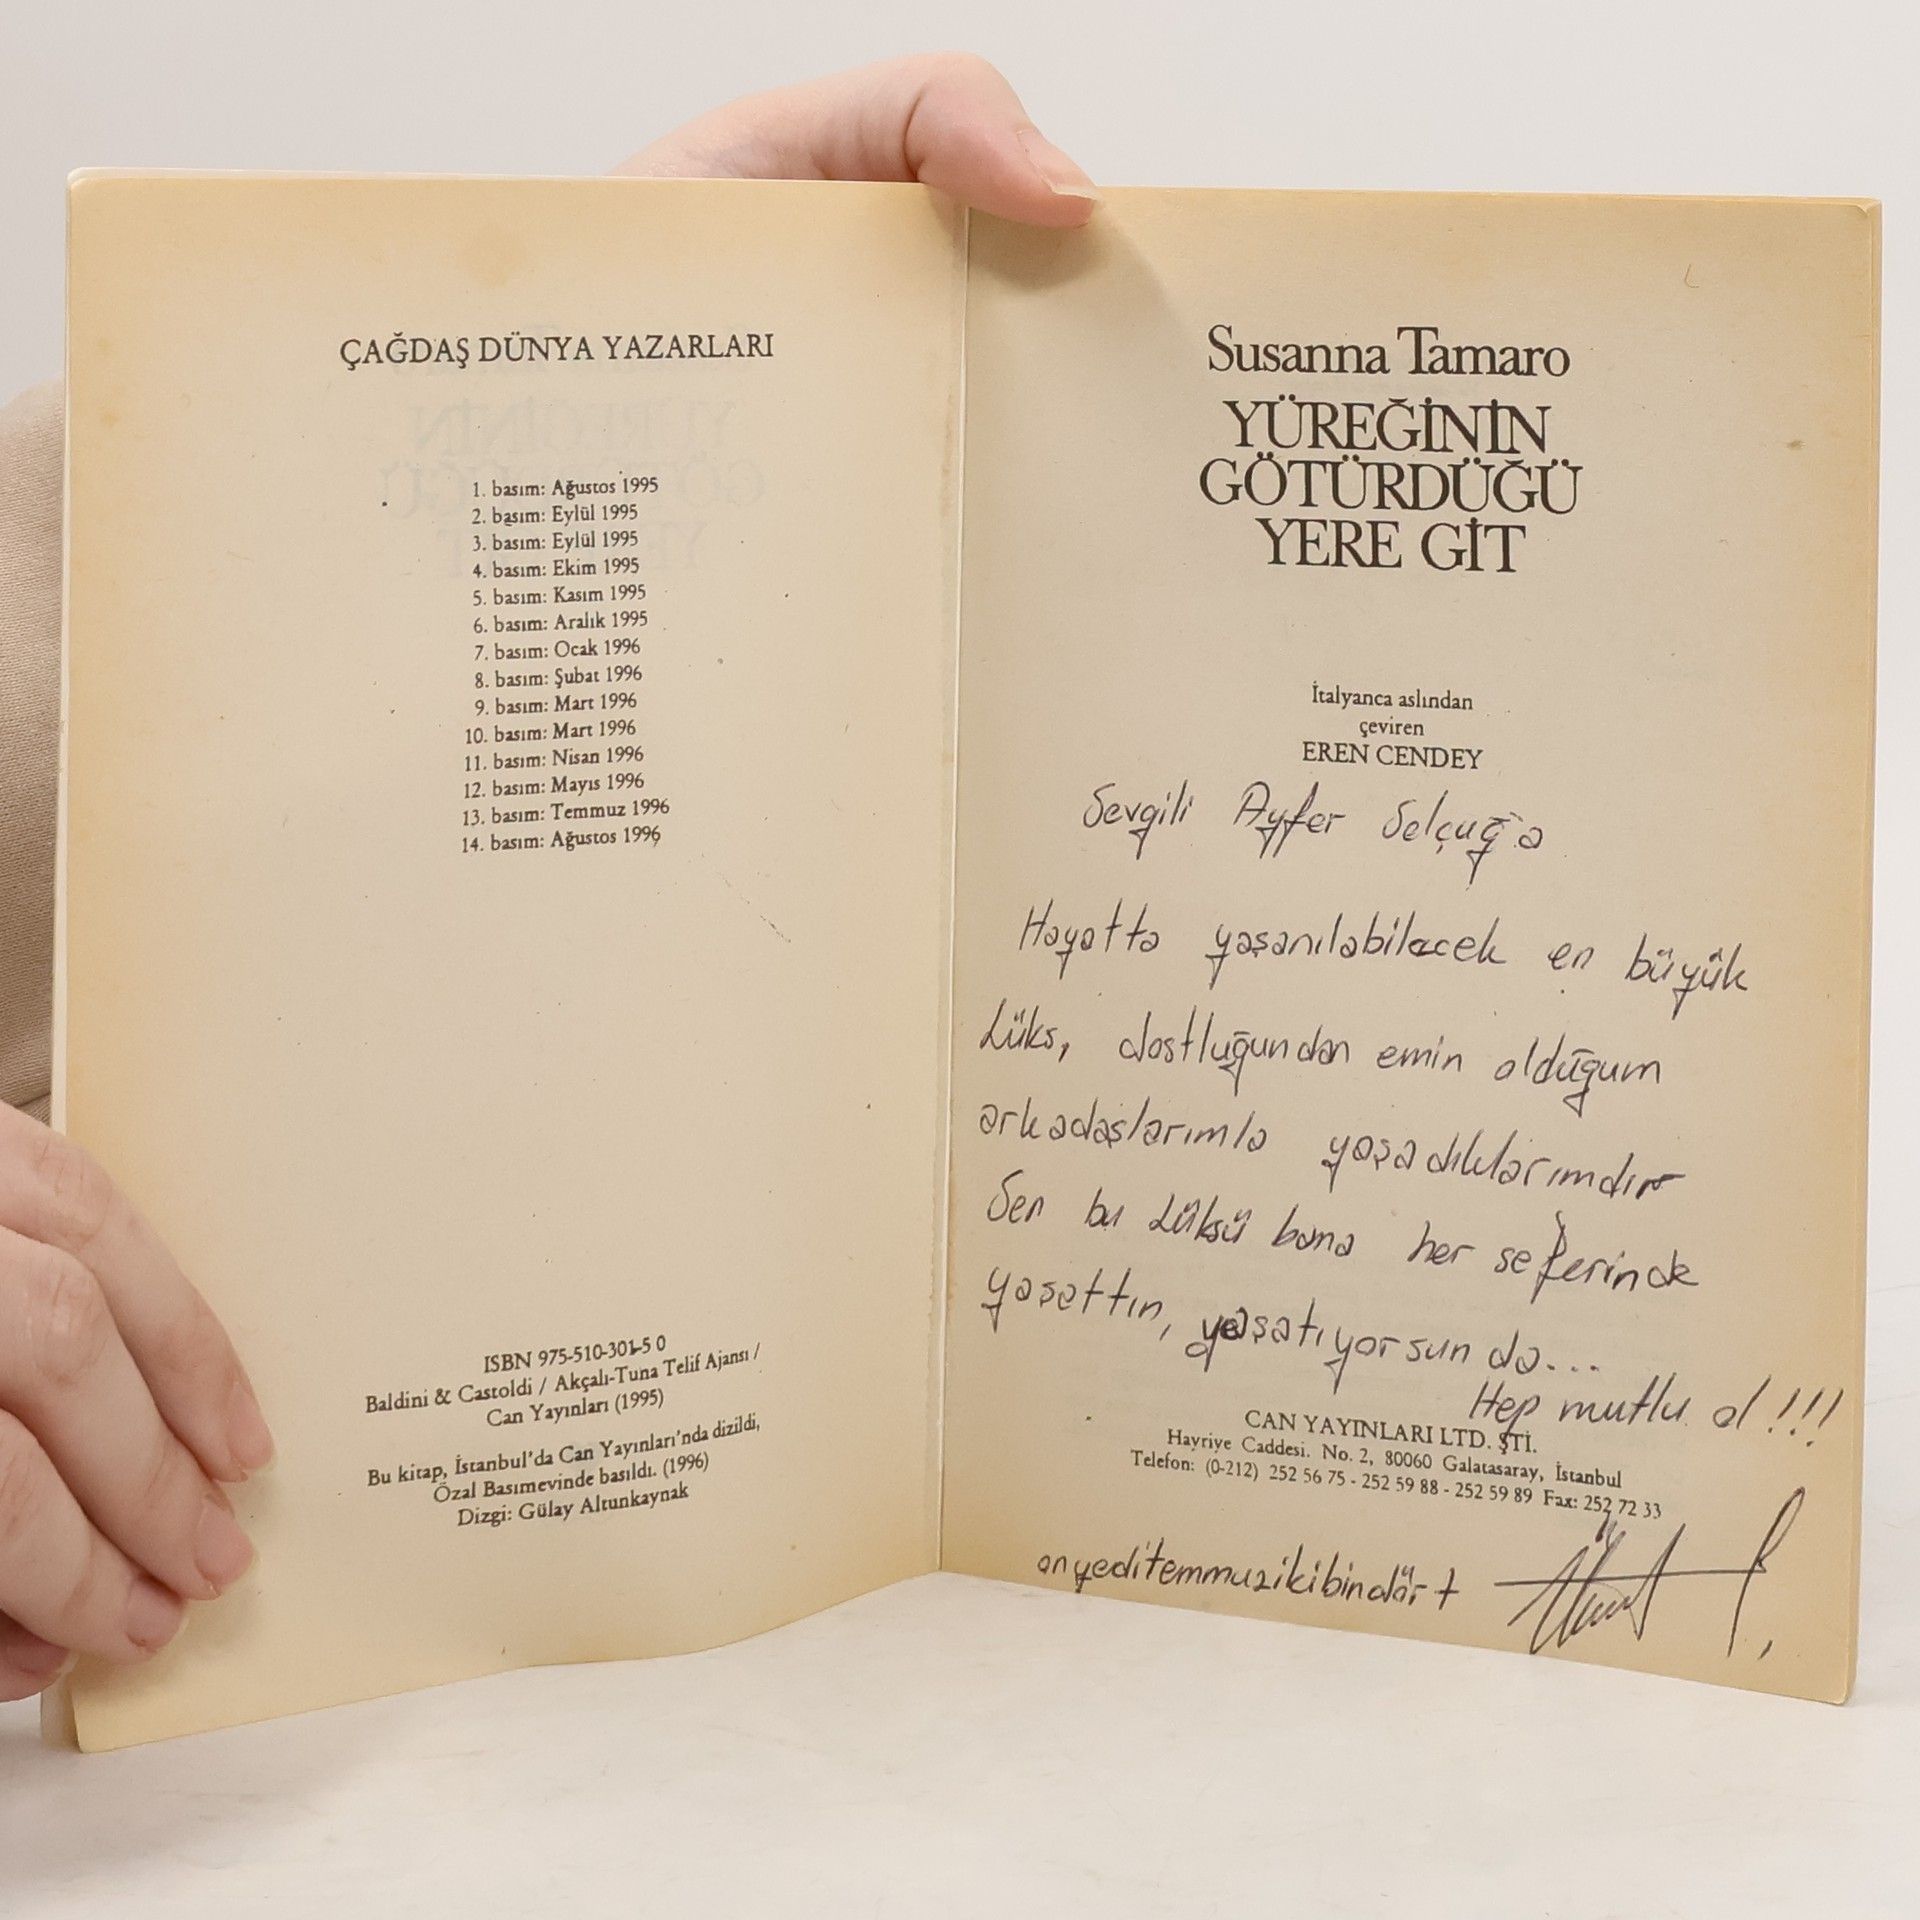 ÇAĞDAŞ DÜNYA YAZARLARI
1. basım: Ağustos 1995
2. basım: Eylül 1995
3. basım: Eylül 1995
4. basım: Ekim 1995
5. basım: Kasım 1995
6. basım: Aralık 1995
7. basım: Ocak 1996
8. basım: Şubat 1996
9. basım: Mart 1996
10. basım: Mart 1996
11. basım: Nisan 1996
12. basım: Mayıs 1996
13. basım: Temmuz 1996
14. basım: Ağustos 1996
ISBN 975-510-301-5 0
Baldini & Castoldi / Akçalı-Tuna Telif Ajansı /
Can Yayınları (1995)
Bu kitap, İstanbul'da Can Yayınları'nda dizildi,
Özal Basımevinde basıldı. (1996)
Dizgi: Gülay Altunkaynak
Susanna Tamaro
YÜREĞİNİN
GÖTÜRDÜĞÜ
YERE GİT
İtalyanca aslından
çeviren
EREN CENDEY
Sevgili Ayfer Selçuğ'a
Hayatta yaşanılabilecek en büyük
Lüks, dostluğundan emin olduğum
arkadaşlarımla yaşadıklarımdır
Sen bu Lüksü bana her seferinde
yaşattın, yaşatıyorsun da...
Hep mutlu ol!!!
CAN YAYINLARI LTD. ŞTİ.
Hayriye Caddesi. No. 2, 80060 Galatasaray, İstanbul
Telefon: (0-212) 252 56 75 - 252 59 88 - 252 59 89 Fax: 252 72 33
onyeditemmuzikibindört